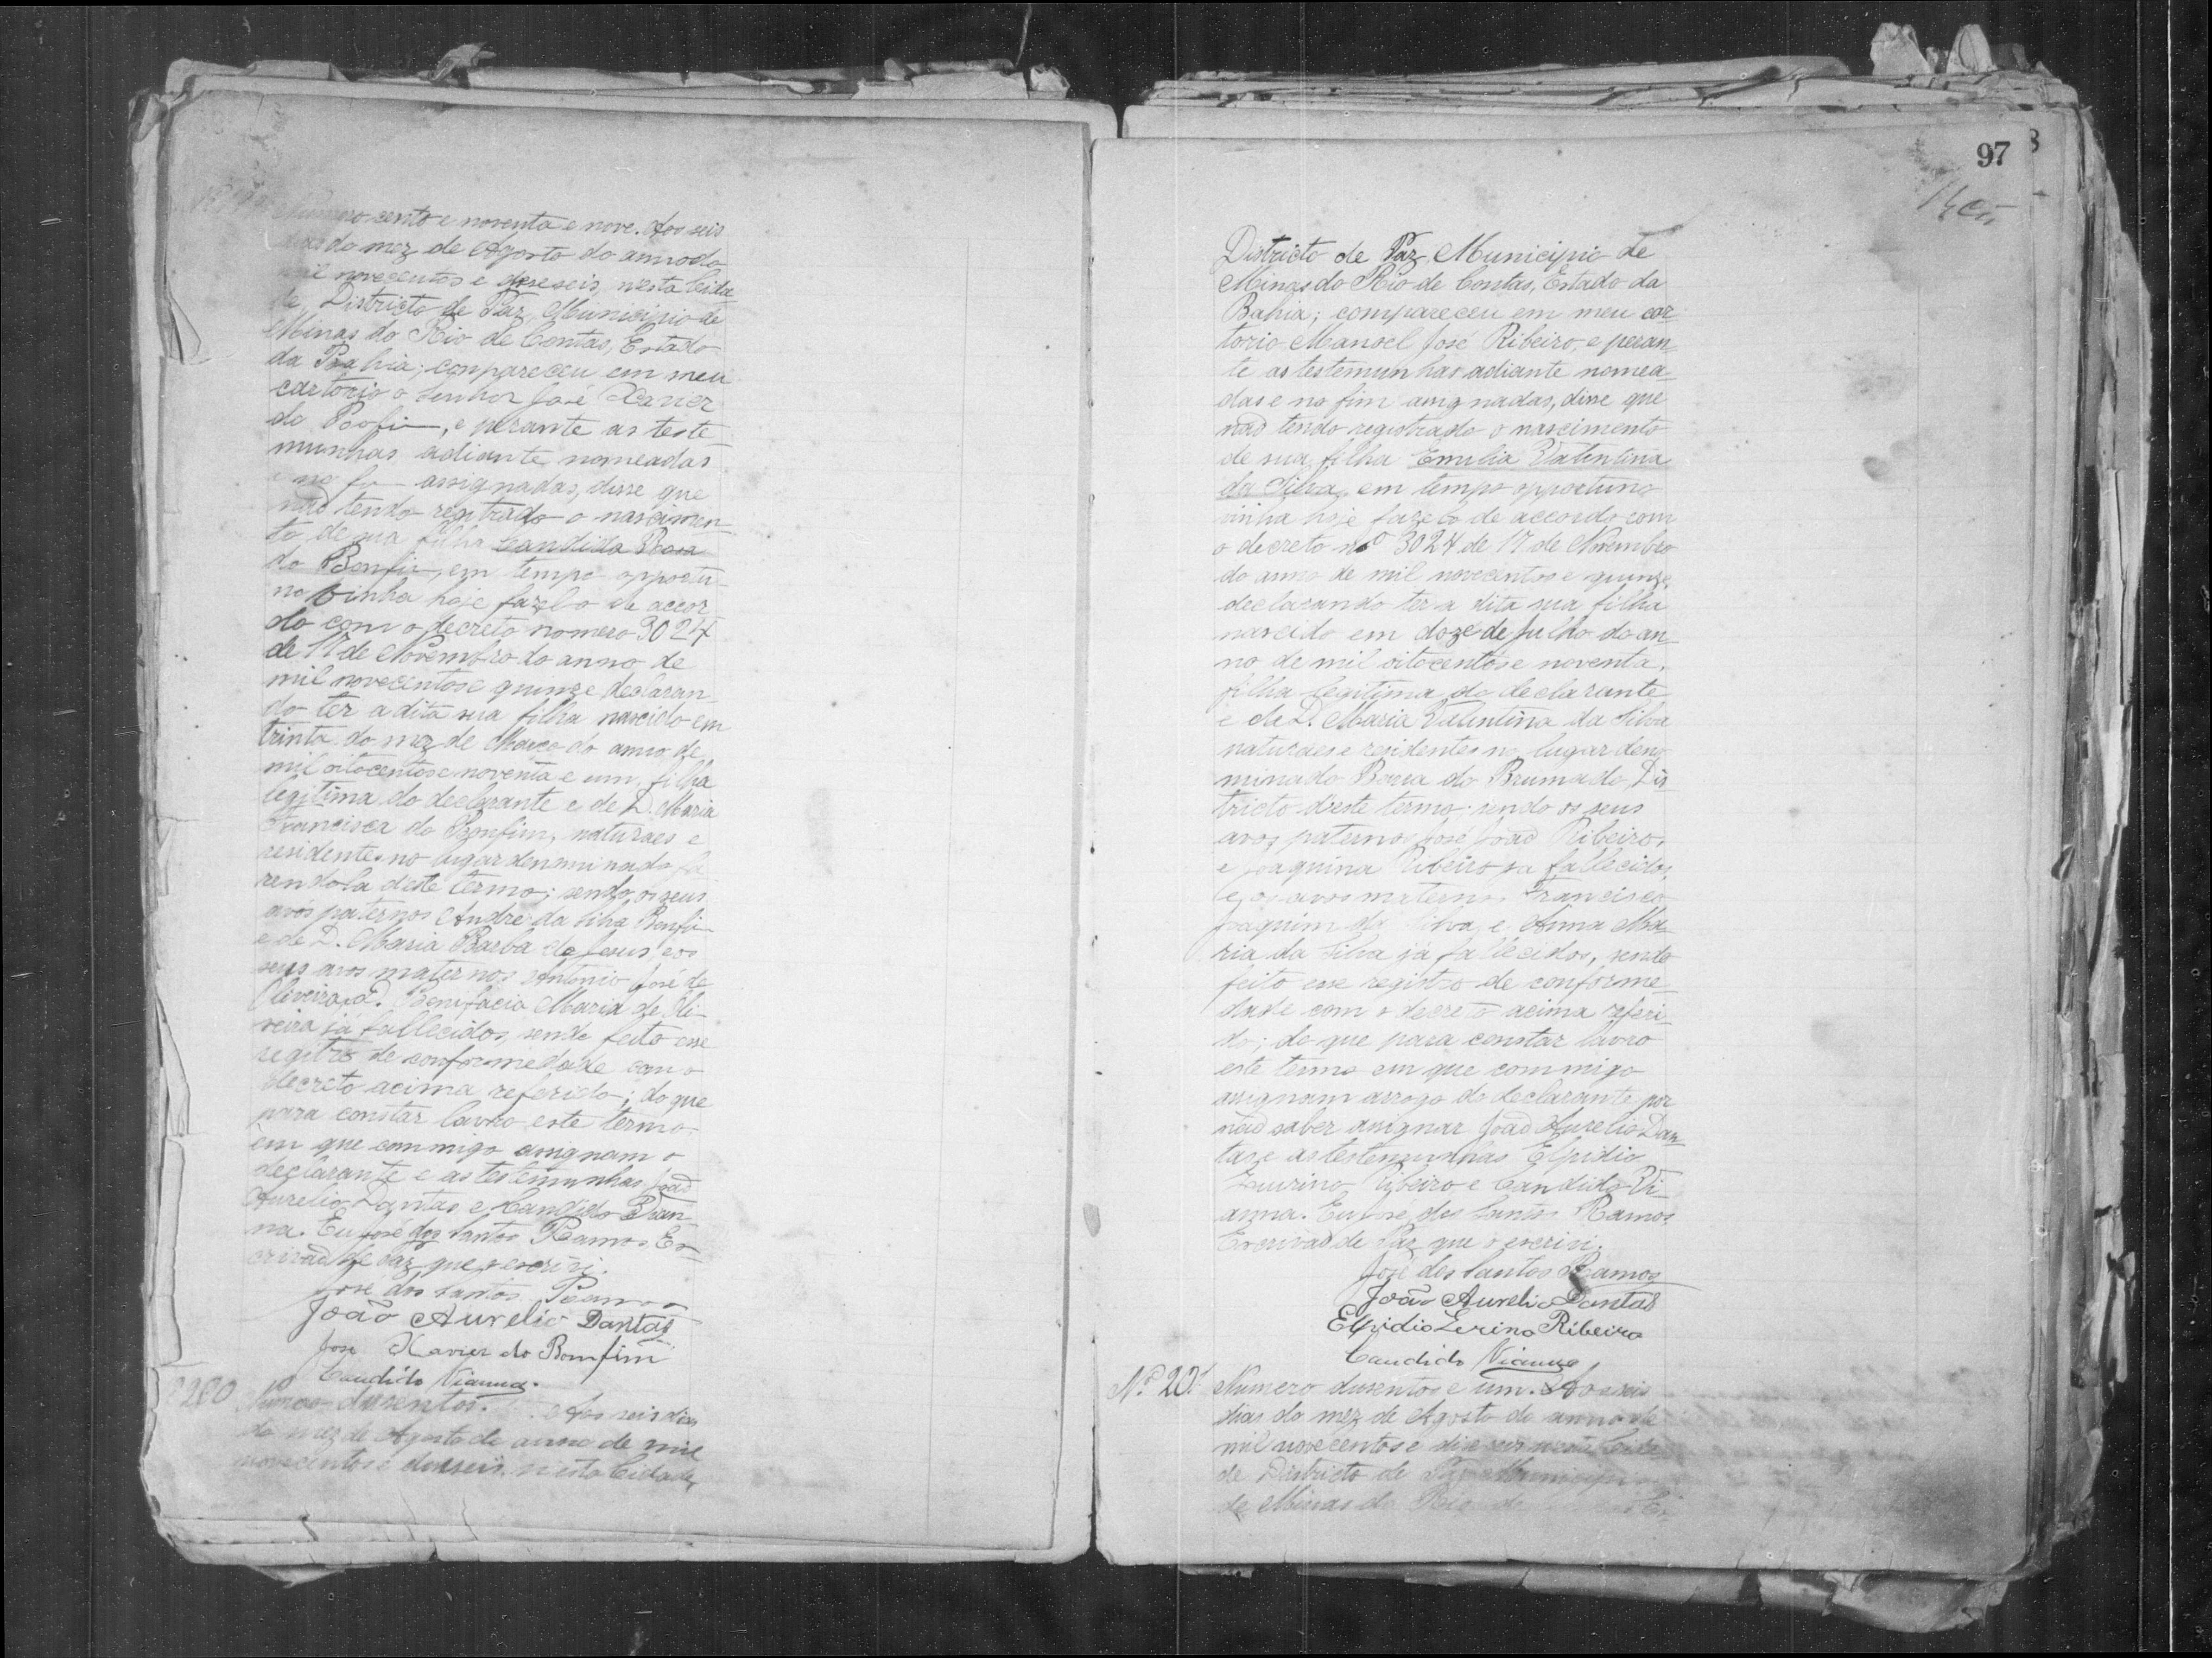 Numero cento e noventa e nove. Aos seis
dias do mez de Agosto do anno do
mil novecentos e deseseis, nesta Cida
de, Districto de Paz, Municipio de
Minas do Rio de Contas, Estado
da Bahia; compareceu em meu
cartorio o Senhor José Xavier
do Bonfim, e perante as teste
munhas adiante nomeadas
e no fim assignadas, disse que
não tendo registrado o nascimen
to de sua filha Candida Rosa
do Bonfim, em tempo opportu
no vinha hoje fazelo de accor
do com o decreto nomero 3024
de 17 de Novembro do anno de
mil novecentos e quinze declaran
do ter a dita sua filha nascido em
trinta do mez de Março do anno de
mil oitocentos e noventa e um, filha
legitima do declarante e de D. Maria
Francisca do Bonfim, naturaes e
residentes no lugar denominado
deste termo; sendo os seus
avós paternos Andre da Silva Bonfim
e de D. Maria Barba de Jesus, e os
seus avos maternos Antonio José de
Oliveira, e D. Bonifacia Maria de Oli-
veira já fallecidos, sendo feito esse
registro de conformedade com o
decreto acima referido; do que
para constar lavro este termo
em que commigo assignam o
declarante e as testemunhas João
Aurelio Dantas e Candido Vian
na. Eu José dos Santos Ramos Es-
crivão de Paz que o escrivi.
José dos Santos Ramos
João Aurelio Dantas
José Xavier do Bomfim
Candido Vianna.
200 Numero dusentos. Aos seis dias
do mez de Agosto do anno de mil
novecentos e deseseis, nesta Cidade,
97
Districto de Paz, Municipio de
Minas do Rio de Contas, Estado da
Bahia; compareceu em meu car
torio Manoel José Ribeiro, e peran
te as testemunhas adiante nomea-
das e no fim assignadas, disse que
não tendo registrado o nascimento
de sua filha Emilia Valentina
da Silva, em tempo opportuno
vinha hoje fazelo de accordo com
o decreto nº 3024 de 17 de Novembro
do anno de mil novecentos e quinze,
declarando ter a dita sua filha
nascido em doze de Julho do an-
no de mil oitocentos e noventa,
filha legitima do declarante
e de D. Maria Valentina da Silva
naturaes e residentes no lugar deno
minado Barra do Brumado, Dis
tricto deste termo; sendo os seus
avos paternos José João Ribeiro,
e Joaquina Ribeiro ja fallecidos,
e os avos maternos Francisco
Joaquim da Silva e Anna Ma
ria da Silva já fallecidos, sendo
feito esse registro de conforme
dade com o decreto acima referi
do; do que para constar lavro
este termo em que commigo
assignam arrogo do declarante por
não saber assignar João Aurelio Dan
tas e as testemunhas Elpidio
Zeurino Ribeiro e Candido Vi-
anna. Eu José dos Santos Ramos
Escrivão de Paz que o escrivi.
José dos Santos Ramos
João Aurelio Dantas
Elpidio Zerino Ribeiro
Candido Vianna
Nº 201 Numero dusentos e um. Aos seis
dias do mez de Agosto do anno de
mil novecentos e deseseis nesta Cida
de Districto de Paz Municipio
de Minas do Rio de